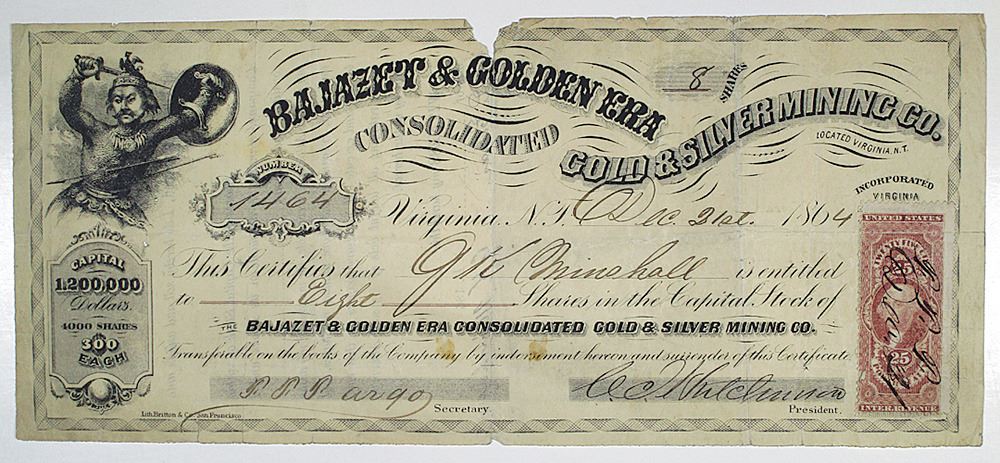 BAJAZET & GOLDEN ERA
CONSOLIDATED
GOLD & SILVER MINING CO.
8 SHARES
LOCATED VIRGINIA. N.T.
INCORPORATED
VIRGINIA
NUMBER
1464
Virginia. N.T. Dec 21st 1864
CAPITAL
1.200,000
Dollars.
4000 SHARES
300
EACH
This Certifies that J K Minshall is entitled
to Eight Shares in the Capital Stock of
THE BAJAZET & GOLDEN ERA CONSOLIDATED GOLD & SILVER MINING CO.
Transferable on the books of the Company by indorsement hereon and surrender of this Certificate
Secretary.
President.
Lith. Britton & Co. San Francisco
UNITED STATES
TWENTY FIVE
25
25
INTER. REVENUE